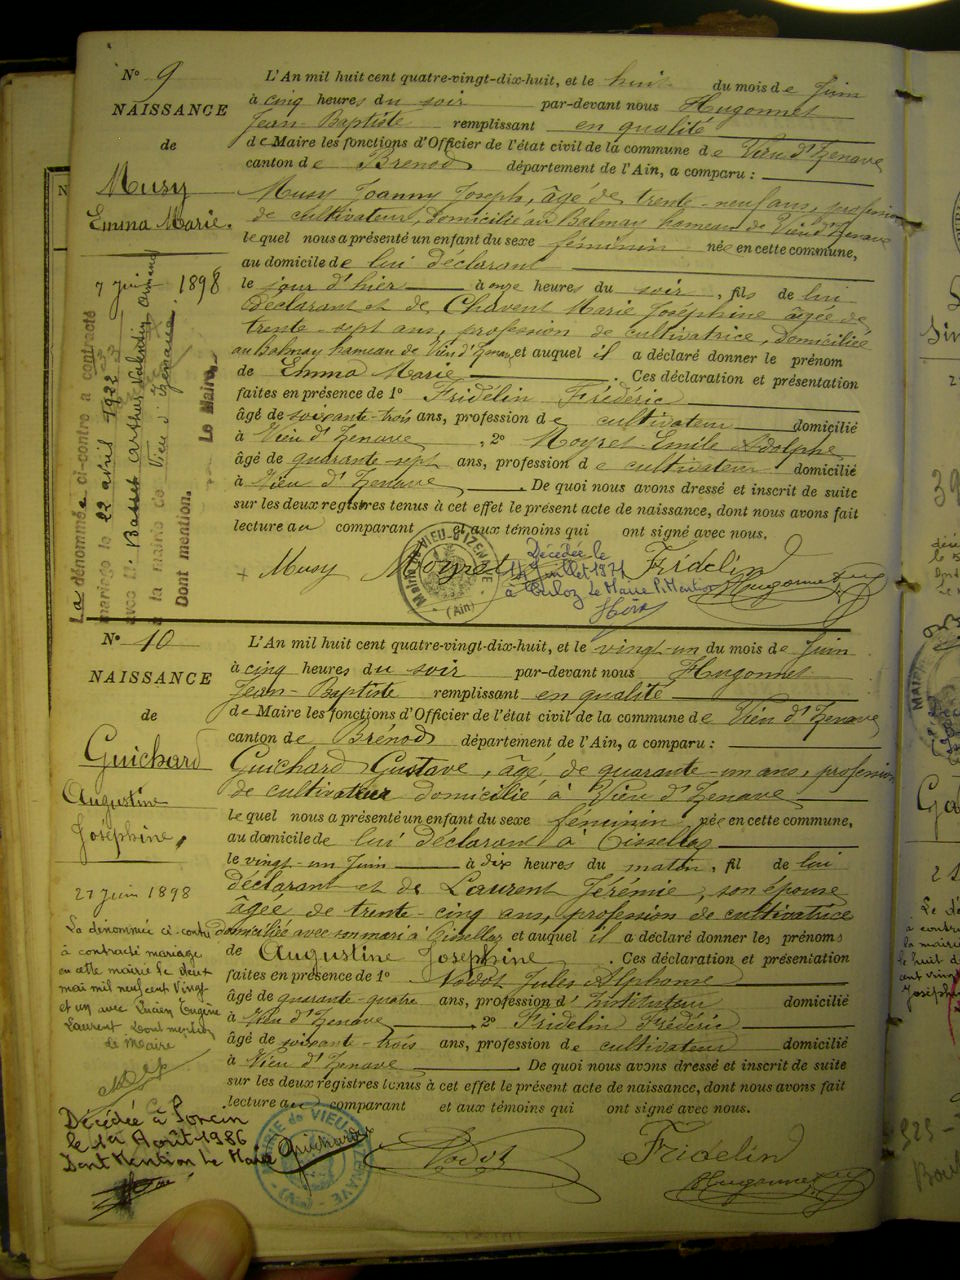 N° 9
NAISSANCE
de
Musy
Emma Marie.
7 juin 1898
La dénommée ci-contre a contracté
mariage le 22 avril 1922
avec M. Basset Arthur Valentin Armand
à la mairie de Vieu d'Izenave.
Dont mention. Le Maire,
L'An mil huit cent quatre-vingt-dix-huit, et le huit du mois de Juin
à cinq heures du soir par-devant nous Hugonnet
Jean-Baptiste remplissant en qualité
de Maire les fonctions d'Officier de l'état civil de la commune de Vieu d'Izenave
canton de Brénod département de l'Ain, a comparu :
Musy Joanny Joseph, âgé de trente-neuf ans, profession
de cultivateur, domicilié au Balmay hameau de Vieu d'Izenave
lequel nous a présenté un enfant du sexe féminin née en cette commune,
au domicile de lui déclarant
le jour d'hier à onze heures du soir, fils de lui
déclarant et de Chavent Marie Joséphine âgée de
trente-sept ans, profession de cultivatrice, domiciliée
au Balmay hameau de Vieu d'Izenave, et auquel il a déclaré donner le prénom
de Emma Marie. Ces déclaration et présentation
faites en présence de 1° Fridelin Fréderic
âgé de soixante-trois ans, profession de cultivateur domicilié
à Vieu d'Izenave, 2° Moyret Emile Adolphe
âgé de quarante-sept ans, profession de cultivateur domicilié
à Vieu d'Izenave. De quoi nous avons dressé et inscrit de suite
sur les deux registres tenus à cet effet le présent acte de naissance, dont nous avons fait
lecture au comparant et aux témoins qui ont signé avec nous.
Musy Moyret Fridelin
Hugonnet
Mairie de VIEU-D'IZENAVE (Ain)
Décédée le
14 juillet 1971
à Culoz Le Maire P. Mention
N° 10
NAISSANCE
de
Guichard
Augustine
Joséphine,
21 Juin 1898
La dénommée ci-contre
à contracté mariage
en cette mairie le deux
mai mil neuf cent Vingt
et un avec Lucien Eugène
Laurent Dont mention
de Maire
Décédée à Poncin
le 12 Août 1986
Dont Mention Le Maire
L'An mil huit cent quatre-vingt-dix-huit, et le vingt-un du mois de Juin
à cinq heures du soir par-devant nous Hugonnet
Jean-Baptiste remplissant en qualité
de Maire les fonctions d'Officier de l'état civil de la commune de Vieu d'Izenave
canton de Brénod département de l'Ain, a comparu :
Guichard Gustave, âgé de quarante-un ans, profession
de cultivateur domicilié à Vieu d'Izenave
lequel nous a présenté un enfant du sexe féminin née en cette commune,
au domicile de lui déclarant à Cisselaz
le vingt-un Juin à dix heures du matin, fil de lui
déclarant et de Laurent Jérémie, son épouse
âgée de trente-cinq ans, profession de cultivatrice
domiciliée avec son mari à Cisselaz et auquel il a déclaré donner les prénoms
de Augustine Joséphine. Ces déclaration et présentation
faites en présence de 1° Nodot Jules Alphonse
âgé de quarante-quatre ans, profession d'Instituteur domicilié
à Vieu d'Izenave, 2° Fridelin Frédéric
âgé de soixante-trois ans, profession de cultivateur domicilié
à Vieu d'Izenave. De quoi nous avons dressé et inscrit de suite
sur les deux registres tenus à cet effet le présent acte de naissance, dont nous avons fait
lecture au comparant et aux témoins qui ont signé avec nous.
Guichard Nodot Fridelin
Hugonnet